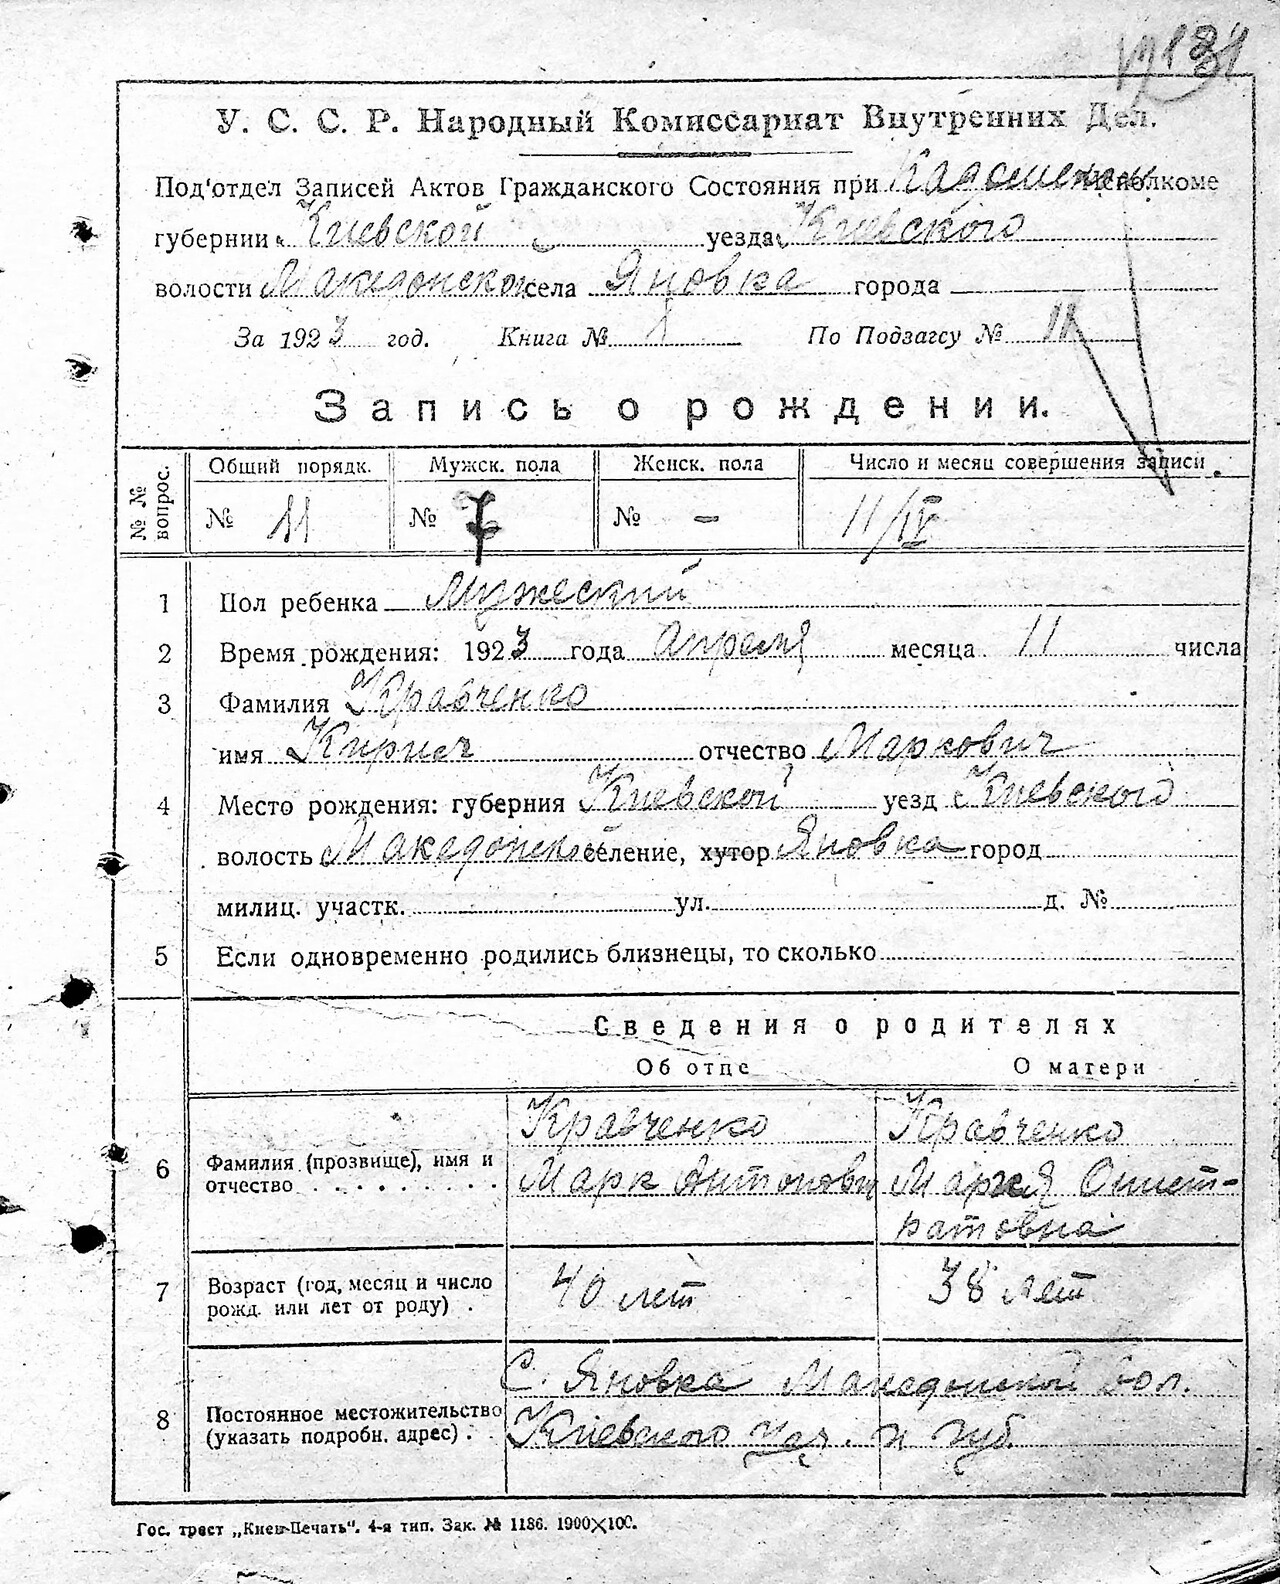 131
У. С. С. Р. Народный Комиссариат Внутренних Дел.
Под'отдел Записей Актов Гражданского Состояния при Исполкоме
губернии Киевской уезда Киевского
волости Македонской села Яновка города
За 1923 год. Книга № 1 По Подзагсу № 11
Запись о рождении.
№ № вопрос. Общий порядк. Мужск. пола Женск. пола Число и месяц совершения записи
№ 11 № 7 № – 11/IV
1 Пол ребенка Мужеский
2 Время рождения: 1923 года Апреля месяца 11 числа
3 Фамилия Кравченко
имя Кирил отчество Маркович
4 Место рождения: губерния Киевской уезд Киевского
волость Македонской селение, хутор Яновка город
милиц. участк. ул. д. №
5 Если одновременно родились близнецы, то сколько
Сведения о родителях
Об отце О матери
Кравченко Кравченко
6 Фамилия (прозвище), имя и Марк Антонович Мария
отчество . . . . . . . . . ратовна
7 Возраст (год, месяц и число 40 лет 38 лет
рожд. или лет от роду) .
С. Яновка Македонской вол.
8 Постоянное местожительство Киевского уез. и губ.
(указать подробн. адрес) . .
Гос. трест „Киев-Печать“. 4-я тип. Зак. № 1186. 1900×100.